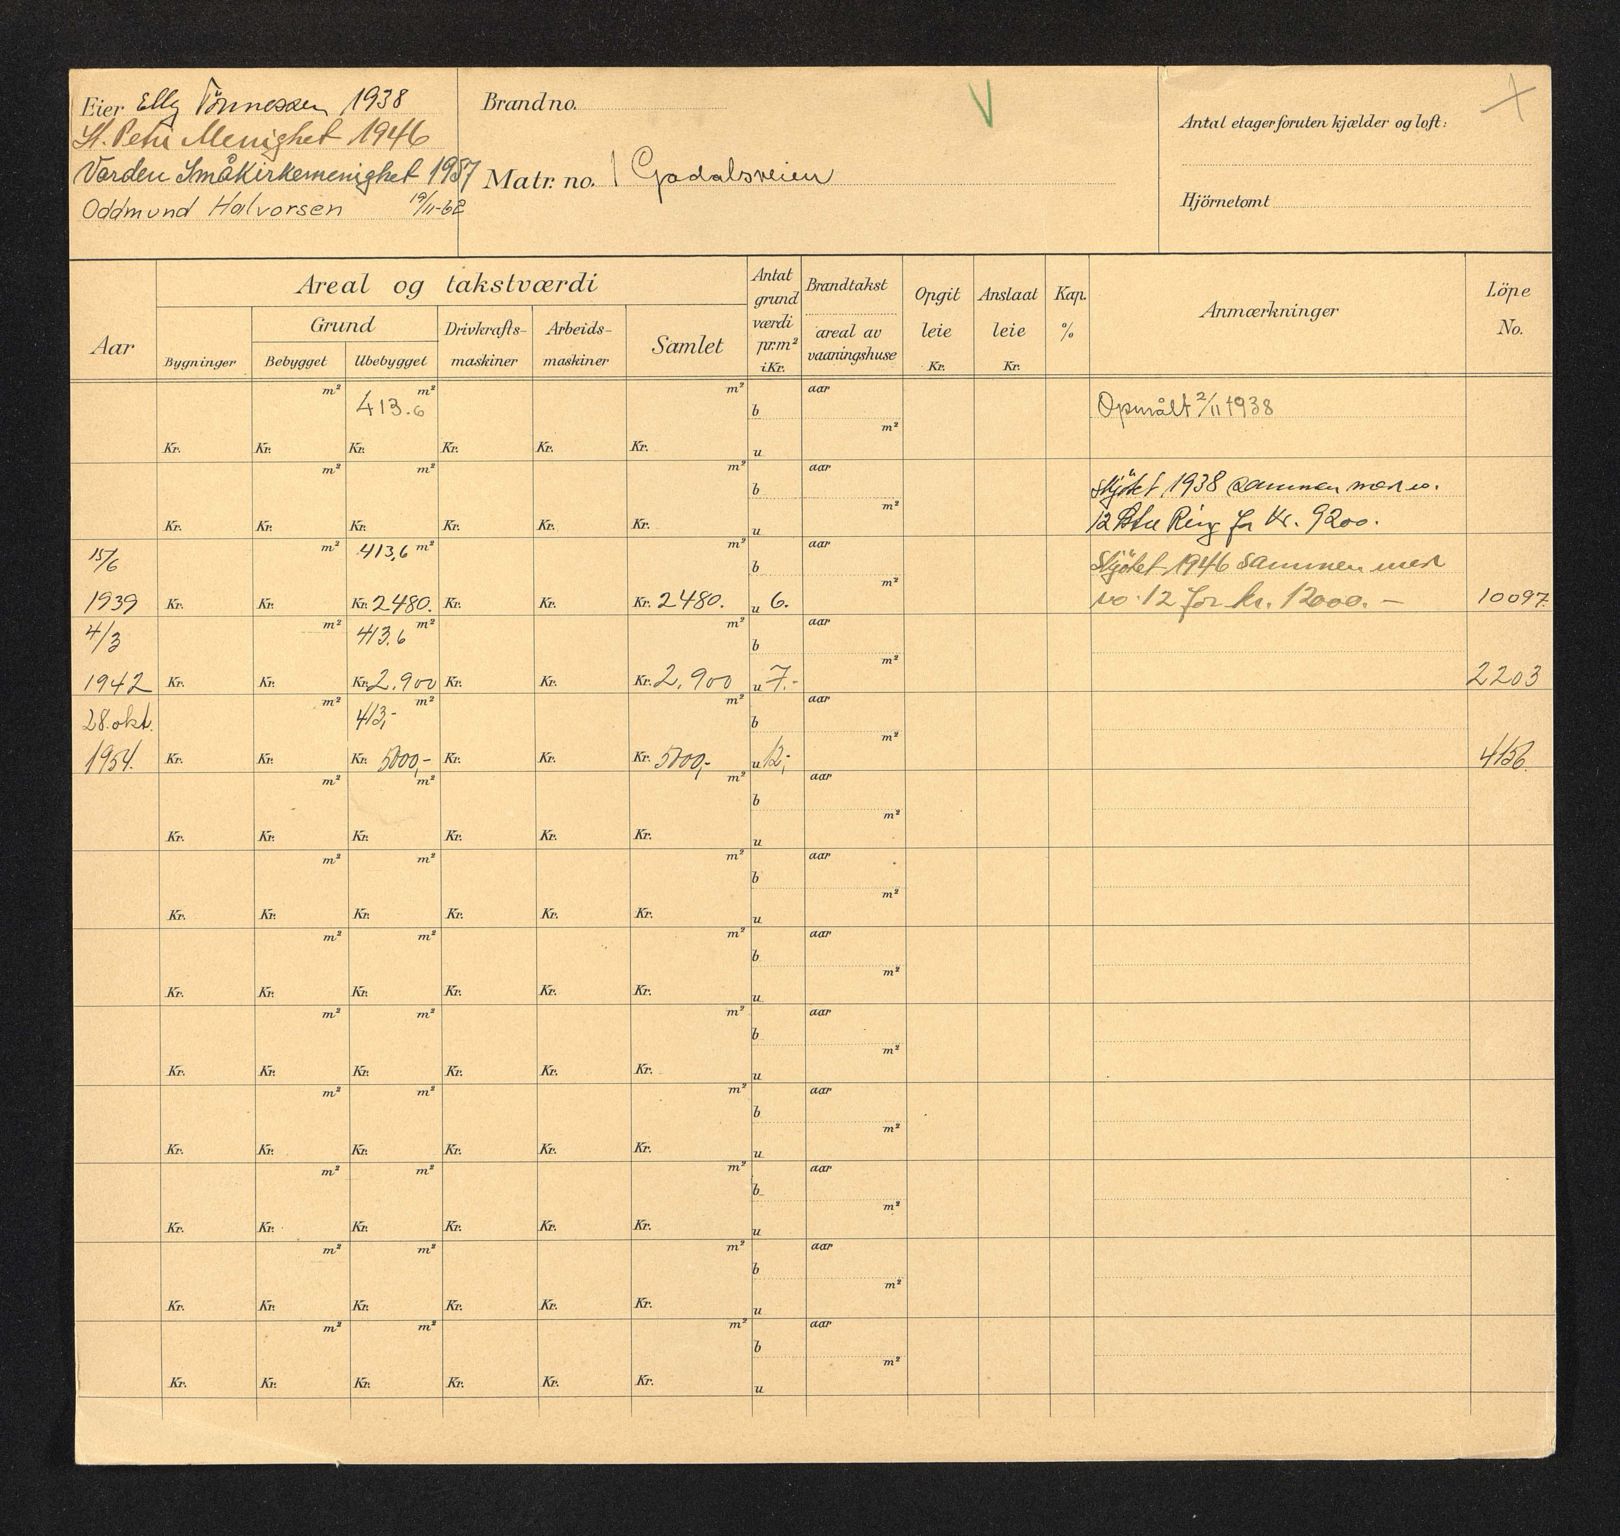 Eier Elly Tönnessen 1938
St. Petri Menighet 1946
Varden Småkirkemenighet 1957
Oddmund Halvorsen 19/11-62
Brand no.
Matr. no. 1 Godalsveien
V
Antal etager foruten kjælder og loft:
Hjörnetomt
Aar
Areal og takstværdi
Bygninger
Grund
Bebygget
Ubebygget
Drivkrafts-
maskiner
Arbeids-
maskiner
Samlet
Antat
grund
værdi
pr. m²
i Kr.
Brandtakst
areal av
vaaningshuse
Opgit
leie
Kr.
Anslaat
leie
Kr.
Kap.
%
Anmærkninger
Löpe
No.
m² 413.6 m² m² b aar Opmålt 2/11 1938
m²
Kr. Kr. Kr. Kr. Kr. Kr. u
m² m² m² b aar Skjötet 1938 sammen med no.
m²
Kr. Kr. Kr. Kr. Kr. Kr. u 12 Ring for Kr. 9200.
15/6 m² 413,6 m² m² b aar Skjötet 1946 sammen med
m²
1939 Kr. Kr. Kr. 2480. Kr. Kr. Kr. 2480. u 6. no. 12 for kr. 12000.- 10097.
4/3 m² 413.6 m² m² b aar
m²
1942 Kr. Kr. Kr. 2.900 Kr. Kr. Kr. 2.900 u 7.- 2203
28. okt. m² 413,- m² m² b aar
m²
1954. Kr. Kr. Kr. 5000,- Kr. Kr. Kr. 5000,- u 12,- 4156.
m² m² m² b aar
m²
Kr. Kr. Kr. Kr. Kr. Kr. u
m² m² m² b aar
m²
Kr. Kr. Kr. Kr. Kr. Kr. u
m² m² m² b aar
m²
Kr. Kr. Kr. Kr. Kr. Kr. u
m² m² m² b aar
m²
Kr. Kr. Kr. Kr. Kr. Kr. u
m² m² m² b aar
m²
Kr. Kr. Kr. Kr. Kr. Kr. u
m² m² m² b aar
m²
Kr. Kr. Kr. Kr. Kr. Kr. u
m² m² m² b aar
m²
Kr. Kr. Kr. Kr. Kr. Kr. u
m² m² m² b aar
m²
Kr. Kr. Kr. Kr. Kr. Kr. u